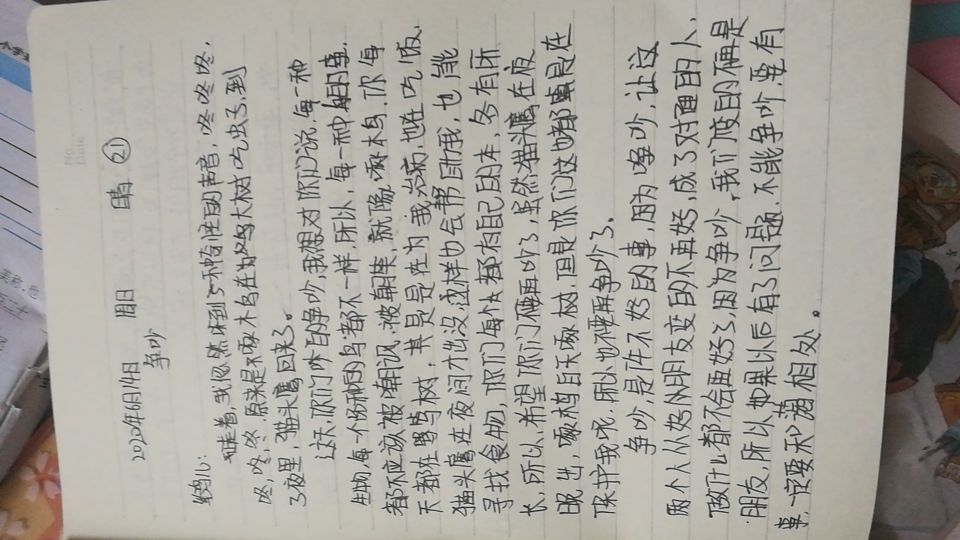 2020年6月14日 周日 晴 21
争吵
鹩儿:
睡着,我忽然听到了一种奇怪的声音,咚咚咚,
咚,咚,咚.原来是啄木鸟在给大树吃虫子,到
了夜里,猫头鹰回来了。
这天,你们俩的争吵,我想对你们说,每一种
生物,每一个物种的鸟都不一样,所以,每一种鸟的事,
都不应该被嘲讽,被嘲笑,就像,啄木鸟,你每
天都在啄树,其是是在为我治病,也在吃饭,
猫头鹰在夜间才出没,这样也会帮助我,也能
寻找食物,你们每个都有自己的本,务有所
长,所以,希望你们不要再吵了,虽然猫头鹰在夜
晚出,啄木鸟白天啄树,但是你们这也都是在
保护我呢,所以也不要再争吵了。
争吵,是件不好的事,因为争吵,让这
两个人从好朋友变的不再好,成了对面的人,
做什么都不会再好了,因为争吵,我们变的不再是
朋友,所以如果以后有了问题,不能争吵,要有
事,一定要和谐相处。
小学生